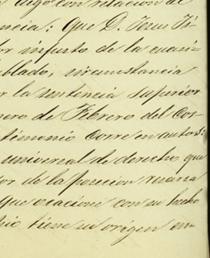 algo con relacion de
ncia: que D. Jesus Fi
or injusto de la cuan
blado, circunstancia
r la sentencia superior
nero de Febrero del cor
timonio corre en autos:
universal de derecho que
or de la porcion
que ocacione con su hecho
cio tiene su origen en